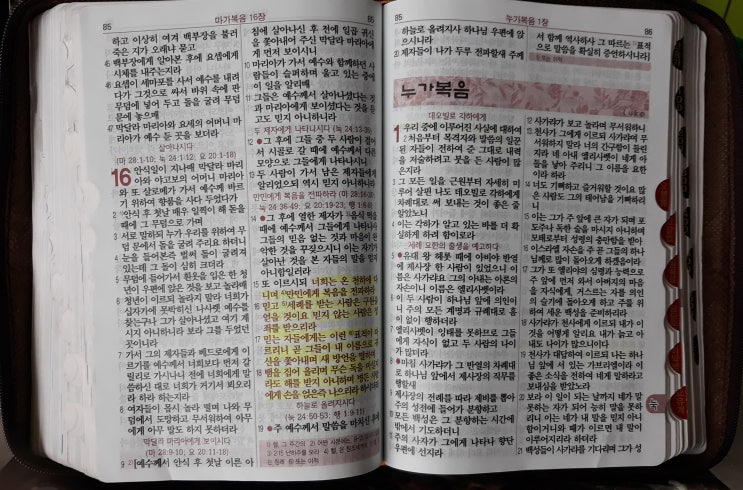 85
마가복음 16장
85
하고 이상히 여겨 백부장을 불러
죽은 지가 오래냐 묻고
45 백부장에게 알아본 후에 요셉에게
시체를 내주는지라
46 요셉이 세마포를 사서 예수를 내려다가
그것으로 싸서 바위 속에 판
무덤에 넣어 두고 돌을 굴려 무덤
문에 놓으매
47 막달라 마리아와 요세의 어머니 마리아가
예수 둔 곳을 보더라
살아나시다
(마 28:1-10; 눅 24:1-12; 요 20:1-18)
16 안식일이 지나매 막달라 마리아와
야고보의 어머니 마리아와
또 살로메가 가서 예수께 바르기
위하여 향품을 사다 두었다가
2 안식 후 첫날 매우 일찍이 해 돋을
때에 그 무덤으로 가며
3 서로 말하되 누가 우리를 위하여 무덤
문에서 돌을 굴려 주리요 하더니
4 눈을 들어본즉 벌써 돌이 굴려져
있는데 그 돌이 심히 크더라
5 무덤에 들어가서 흰옷을 입은 한 청년이
우편에 앉은 것을 보고 놀라매
6 청년이 이르되 놀라지 말라 너희가 십자가에
못박히신 나사렛 예수를
찾는구나 그가 살아나셨고 여기 계시지
아니하니라 보라 그를 두었던
곳이니라
7 가서 그의 제자들과 베드로에게 이르기를
예수께서 너희보다 먼저 갈릴리로
가시나니 전에 너희에게 말씀하신
대로 너희가 거기서 뵈오리라
하라 하는지라
8 여자들이 몹시 놀라 떨며 나와 무덤에서
도망하고 무서워하여 아무에게
아무 말도 하지 못하더라
막달라 마리아에게 보이시다
(마 28:9-10; 요 20:11-18)
9 [예수께서 안식 후 첫날 이른 아침에
살아나신 후 전에 일곱 귀신을
쫓아내어 주신 막달라 마리아에게
먼저 보이시니
10 마리아가 가서 예수와 함께하던 사람들이
슬퍼하며 울고 있는 중에
이 일을 알리매
11 그들은 예수께서 살아나셨다는 것과
마리아에게 보이셨다는 것을 듣고도
믿지 아니하니라
두 제자에게 나타나시다
12 그 후에 그들 중 두 사람이 걸어서
시골로 갈 때에 예수께서 다른
모양으로 그들에게 나타나시니
13 두 사람이 가서 남은 제자들에게
알리었으되 역시 믿지 아니하니라
만민에게 복음을 전파하라
14 그 후에 열한 제자가 음식 먹을
때에 예수께서 그들에게 나타나사
그들의 믿음 없는 것과 마음이 완악한
것을 꾸짖으시니 이는 자기가
살아난 것을 본 자들의 말을 믿지
아니함일러라
15 또 이르시되 너희는 온 천하에 다니며
만민에게 복음을 전파하라
16 믿고 세례를 받는 사람은 구원을
얻을 것이요 믿지 않는 사람은 정죄를
받으리라
17 믿는 자들에게는 이런 표적이 따르리니
곧 그들이 내 이름으로 귀신을
쫓아내며 새 방언을 말하며
18 뱀을 집어올리며 무슨 독을 마실지라도
해를 받지 아니하며 병든 사람에게
손을 얹은즉 나으리라 하시더라
하늘로 올려지시다
(눅 24:50-53; 행 1:9-11)
19 주 예수께서 말씀을 마치신 후에
85
누가복음 1장
86
하늘로 올려지사 하나님 우편에 앉으시니라
20 제자들이 나가 두루 전파할새 주께서
함께 역사하사 그 따르는 표적으로
말씀을 확실히 증언하시니라]
누가복음
데오빌로 각하에게
1 우리 중에 이루어진 사실에 대하여
2 처음부터 목격자와 말씀의 일꾼
된 자들이 전하여 준 그대로 내력을
저술하려고 붓을 든 사람이 많은지라
3 그 모든 일을 근원부터 자세히 미루어
살핀 나도 데오빌로 각하에게
차례대로 써 보내는 것이 좋은 줄
알았노니
4 이는 각하가 알고 있는 바를 더 확실하게
하려 함이로라
세례 요한의 출생을 예고하다
5 유대 왕 헤롯 때에 아비야 반열에
제사장 한 사람이 있었으니 이름은
사가랴요 그의 아내는 아론의
자손이니 이름은 엘리사벳이라
6 이 두 사람이 하나님 앞에 의인이니
주의 모든 계명과 규례대로 흠이
없이 행하더라
7 엘리사벳이 잉태를 못하므로 그들에게
자식이 없고 두 사람의 나이가
많더라
8 마침 사가랴가 그 반열의 차례대로
하나님 앞에서 제사장의 직무를
행할새
9 제사장의 전례를 따라 제비를 뽑아
주의 성전에 들어가 분향하고
10 모든 백성은 그 분향하는 시간에
밖에서 기도하더니
11 주의 사자가 그에게 나타나 향단
우편에 선지라
12 사가랴가 보고 놀라며 무서워하니
13 천사가 그에게 이르되 사가랴여 무서워하지
말라 너의 간구함이 들린지라
네 아내 엘리사벳이 네게 아들을
낳아 주리니 그 이름을 요한이라
하라
14 너도 기뻐하고 즐거워할 것이요 많은
사람도 그의 태어남을 기뻐하리니
15 이는 그가 주 앞에 큰 자가 되며 포도주나
독한 술을 마시지 아니하며
모태로부터 성령의 충만함을 받아
16 이스라엘 자손을 주 곧 그들의 하나님께로
많이 돌아오게 하겠음이라
17 그가 또 엘리야의 심령과 능력으로
주 앞에 먼저 와서 아버지의 마음을
자식에게, 거스르는 자를 의인의
슬기에 돌아오게 하고 주를 위하여
세운 백성을 준비하리라
18 사가랴가 천사에게 이르되 내가 이것을
어떻게 알리요 내가 늙고 아내도
나이가 많으니이다
19 천사가 대답하여 이르되 나는 하나님
앞에 서 있는 가브리엘이라 이
좋은 소식을 전하여 네게 말하라고
보내심을 받았노라
20 보라 이 일이 되는 날까지 네가 말
못하는 자가 되어 능히 말을 못하리니
이는 네가 내 말을 믿지 아니함이거니와
때가 이르면 내 말이
이루어지리라 하더라
21 백성들이 사가랴를 기다리며 그가 성
눅